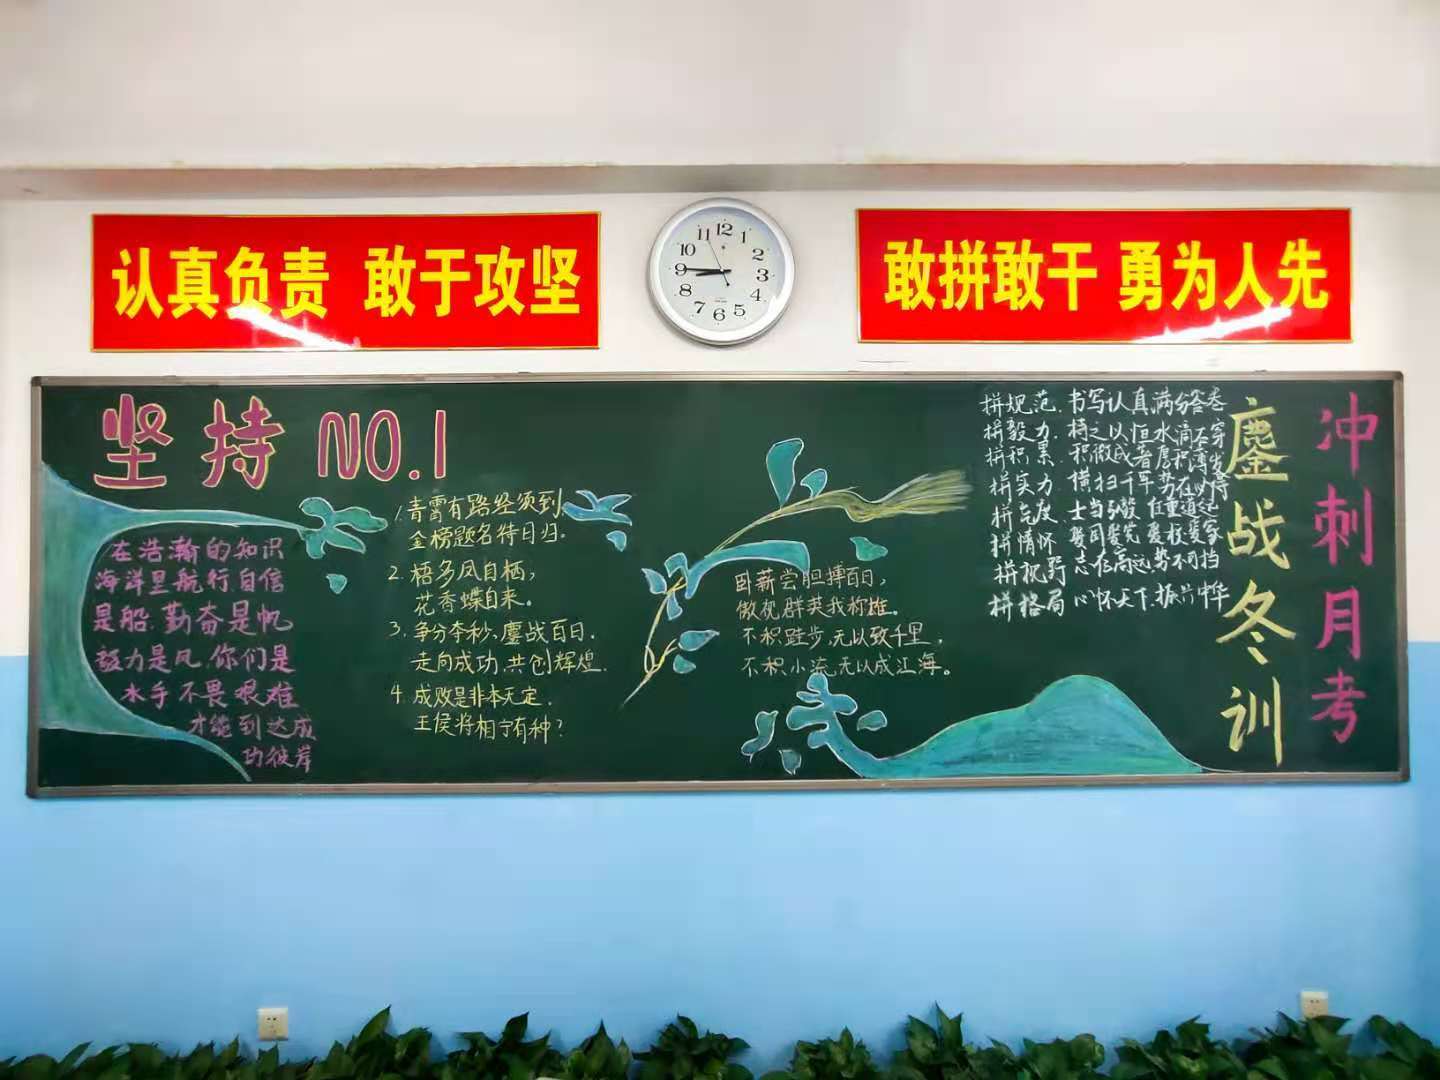 认真负责 敢于攻坚
12
1
2
3
4
5
6
7
8
9
10
11
敢拼敢干 勇为人先
坚持 NO.1
在浩瀚的知识
海洋里航行,自信
是船,勤奋是帆
毅力是风,你们是
水手不畏艰难
才能到达成
功彼岸
1.青霄有路终须到,
金榜题名待日归。
2.梧多凤自栖,
花香蝶自来。
3.争分夺秒,鏖战百日,
走向成功,共创辉煌.
4.成败是非本无定,
王侯将相宁有种?
卧薪尝胆搏百日,
傲视群英我称雄。
不积跬步,无以致千里,
不积小流,无以成江海。
拼规范,书写认真满分答卷
拼毅力,持之以恒水滴石穿
拼积累,积微成著厚积薄发
拼实力,横扫千军势在必得
拼气度,士当弘毅任重道远
拼情怀,爱国爱党爱校爱家
拼视野,志存高远势不可挡
拼格局,心怀天下,振兴中华
鏖战冬训
冲刺月考